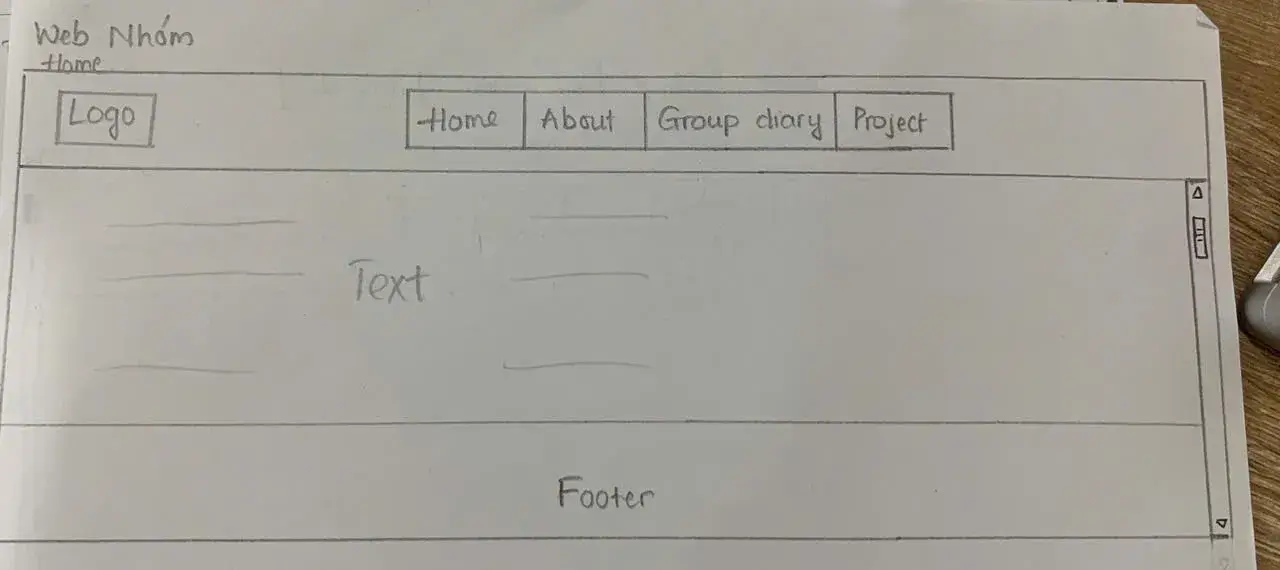 Web Nhóm
Home
Logo
Home About Group diary Project
Text
Footer